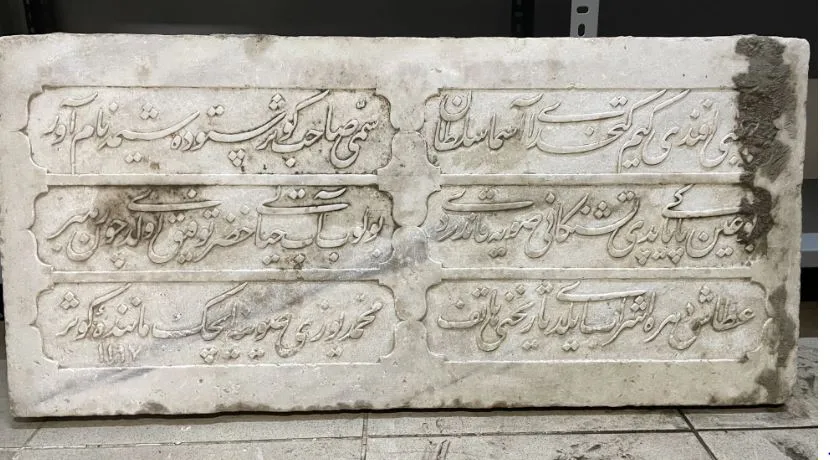 چلبی افندی کیم کتخدای آسما سلطان
سمی صاحب کوثر ستوده شیمه نام آور
بو عین پاکی یاپدی تشنکانی صویه قاندردی
بولوب آب حیاتی خضر توفیق اولدی چون رهبر
عطاش دهره اشراب ایلدی تاریخنی هاتف
محمد یوزی صوینه ایچک ماننده کوثر
١١٩٧